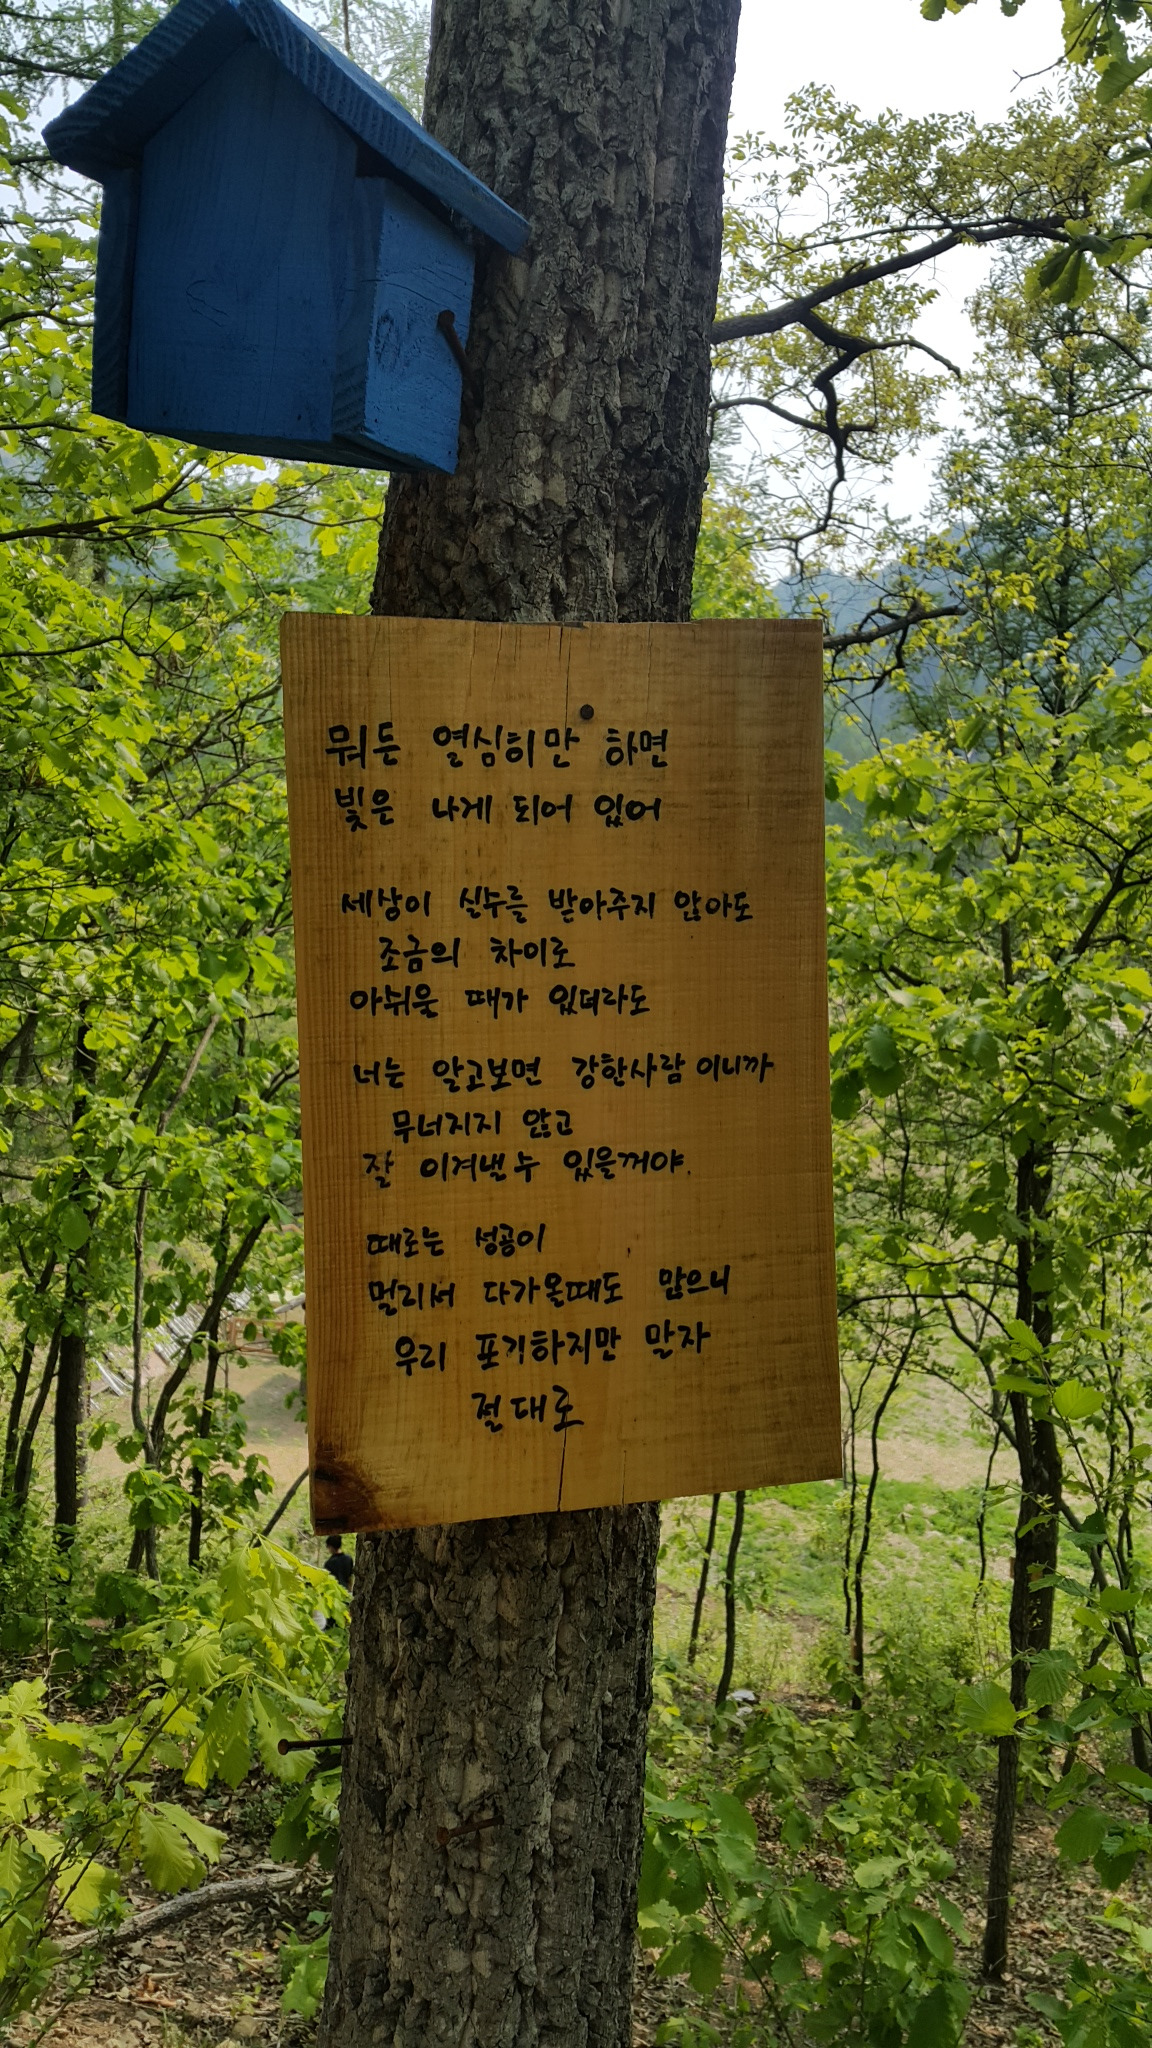 뭐든 열심히만 하면
빛은 나게 되어 있어
세상이 실수를 받아주지 않아도
조금의 차이로
아쉬울 때가 있더라도
너는 알고보면 강한사람 이니까
무너지지 않고
잘 이겨낼 수 있을꺼야.
때로는 성공이
멀리서 다가올때도 많으니
우리 포기하지만 말자
절대로